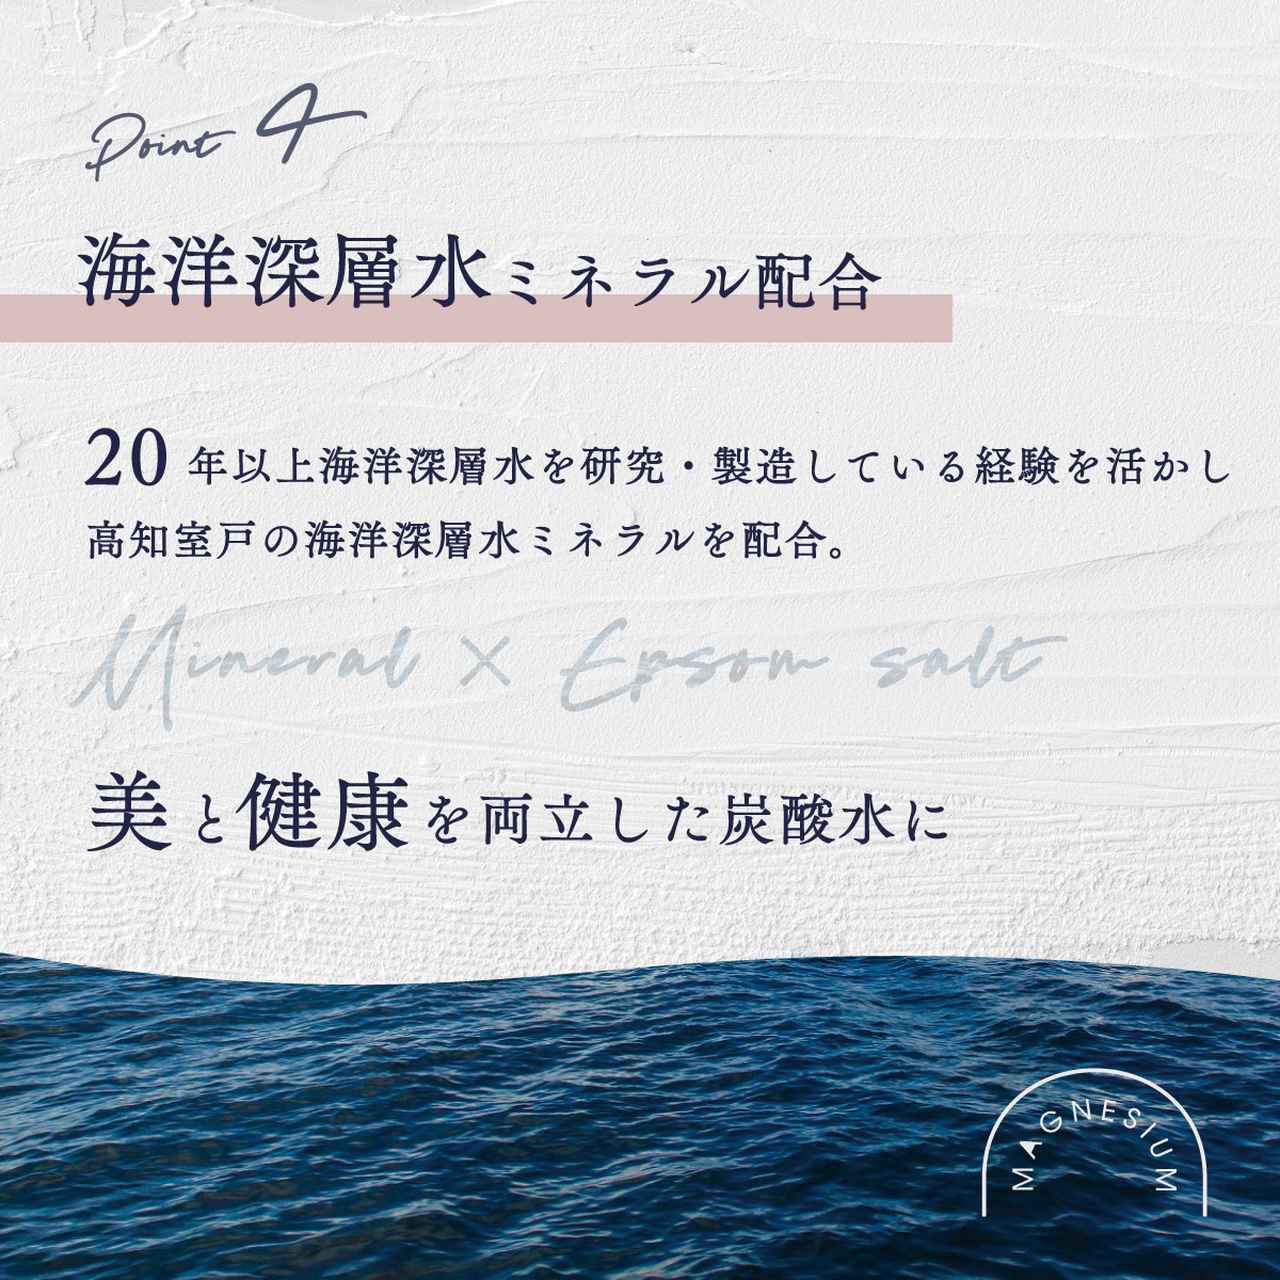 Point 4
海洋深層水ミネラル配合
20年以上海洋深層水を研究・製造している経験を活かし
高知室戸の海洋深層水ミネラルを配合。
Mineral × Epsom salt
美と健康を両立した炭酸水に
MAGNESIUM